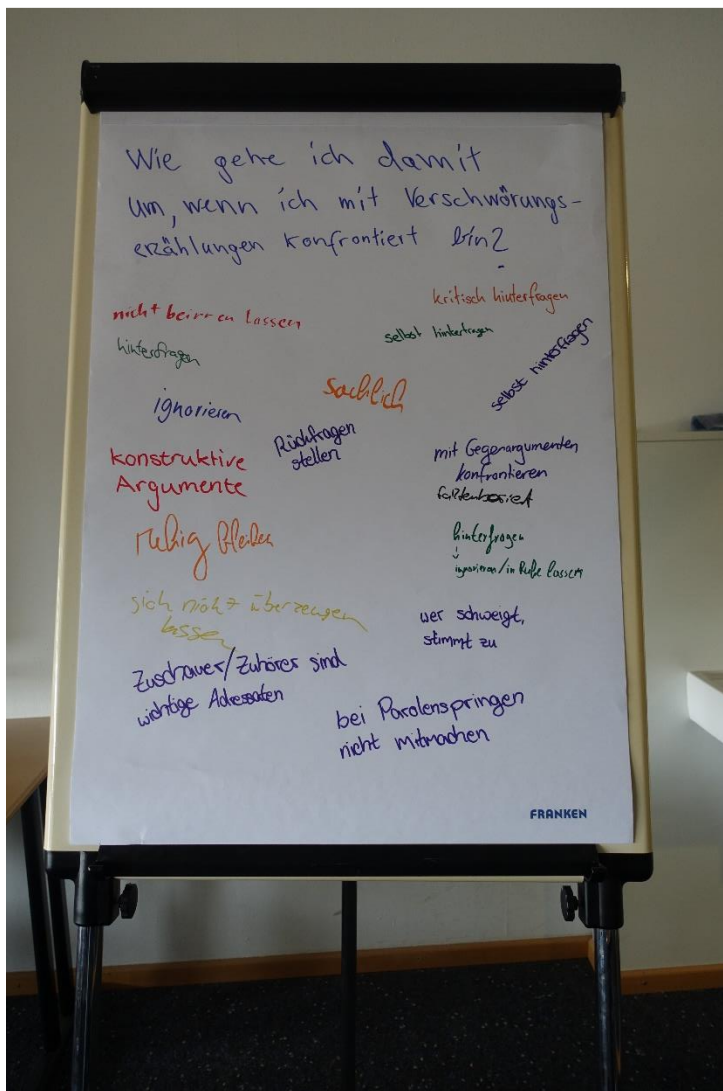 Wie gehe ich damit
um, wenn ich mit Verschwörungs-
erzählungen konfrontiert bin?
kritisch hinterfragen
nicht beirren lassen
selbst hinterfragen
hinterfragen
selbst hinterfragen
sachlich
ignorieren
Rückfragen
stellen
mit Gegenargumenten
konfrontieren
faktenbasiert
konstruktive
Argumente
ruhig bleiben
hinterfragen
↓
ignorieren/in Ruhe lassen
sich nicht überzeugen
lassen
wer schweigt,
stimmt zu
Zuschauer/Zuhörer sind
wichtige Adressaten
bei Parolenspringen
nicht mitmachen
FRANKEN